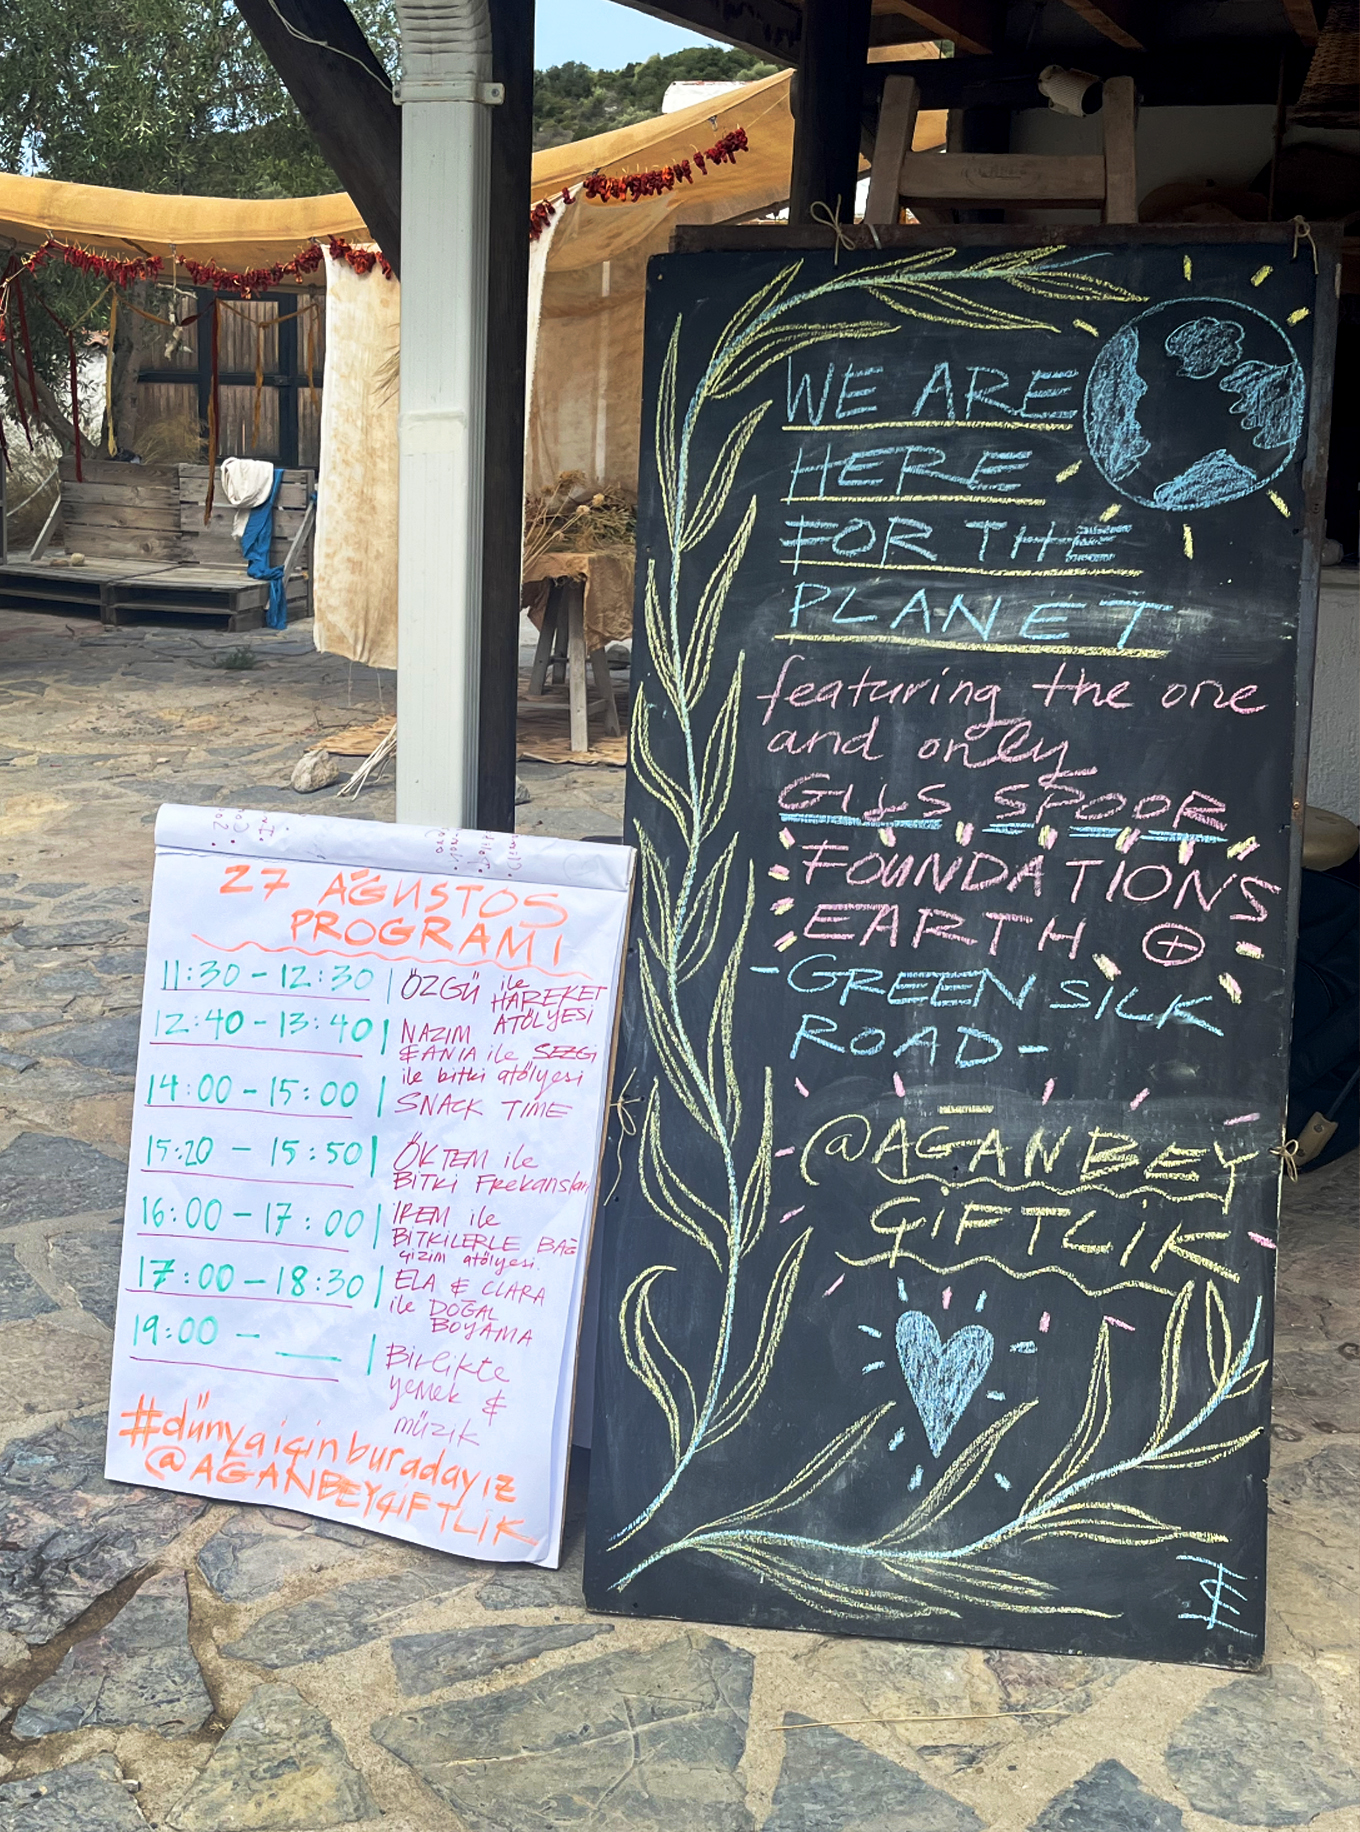 27 AĞUSTOS
PROGRAMI
11:30 - 12:30 | ÖZGÜ ile
HAREKET
ATÖLYESİ
12:40 - 13:40 | NAZIM
& ANIA ile SEZGİ
ile bitki atölyesi
14:00 - 15:00 | SNACK TIME
15:20 - 15:50 | ÖKTEM ile
BİTKİ Frekansları
16:00 - 17:00 | İREM ile
BİTKİLERLE BAĞ
çizim atölyesi.
17:00 - 18:30 | ELA & CLARA
ile DOĞAL
BOYAMA
19:00 - __ | Birlikte
yemek &
müzik
#dünyaiçinburadayız
@AGANBEYÇİFTLİK
WE ARE
HERE
FOR THE
PLANET
featuring the one
and only
GIJS SPOOR
FOUNDATIONS
EARTH
-GREEN SILK
ROAD-
@AGANBEY
ÇİFTLİK